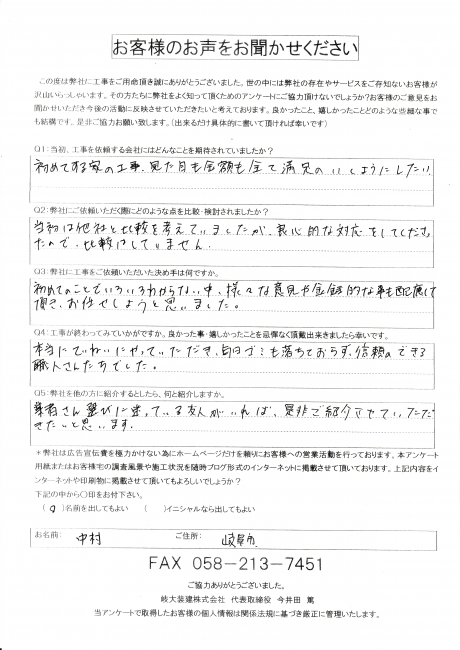 お客様のお声をお聞かせください
この度は弊社に工事をご用命頂き誠にありがとうございました。世の中には弊社の存在やサービスをご存知ないお客様が
沢山いらっしゃいます。その方たちに弊社をよく知って頂くためのアンケートにご協力頂けないでしょうか？お客様のご意見をお
聞かせいただき今後の活動に反映させていただきたいと考えております。良かったこと、嬉しかったことどのような些細な事で
も結構です。是非ご協力お願い致します。（出来るだけ具体的に書いて頂ければ幸いです）
Q1：当初、工事を依頼する会社にはどんなことを期待されていましたか？
初めてする家の工事、見た目も金額も全て満足のいくようにしたい
Q2：弊社にご依頼いただく際にどのような点を比較・検討されましたか？
当初は他社と比較を考えていましたが、良心的な対応をしてくださっ
たので、比較はしていません。
Q3：弊社に工事をご依頼いただいた決め手は何ですか。
初めてのことでいろいろわからない中、様々な意見や金銭的な事も配慮して
頂き、お任せしようと思いました。
Q4：工事が終わってみていかがですか。良かった事・嬉しかったことを忌憚なく頂戴出来きましたら幸いです。
本当にていねいにやっていただき、毎日ゴミも落ちておらず、信頼のできる
職人さんたちでした。
Q5：弊社を他の方に紹介するとしたら、何と紹介しますか。
業者さん選びに迷っている友人がいれば、是非で紹介させていただ
きたいと思います。
＊弊社は広告宣伝費を極力かけない為にホームページだけを頼りにお客様への営業活動を行っております。本アンケート
用紙またはお客様宅の調査風景や施工状況を随時ブログ形式のインターネットに掲載させて頂いております。上記内容をイ
ンターネットや印刷物に掲載させて頂いてもよろしいでしょうか？
下記の中から〇印をお付下さい。
（ ）名前を出してもよい （ ）イニシャルなら出してもよい
お名前： 中村 ご住所： 岐阜市
FAX 058－213－7451
ご協力ありがとうございました。
岐大装建株式会社 代表取締役 今井田 篤
当アンケートで取得したお客様の個人情報は関係法規に基づき厳正に管理いたします。